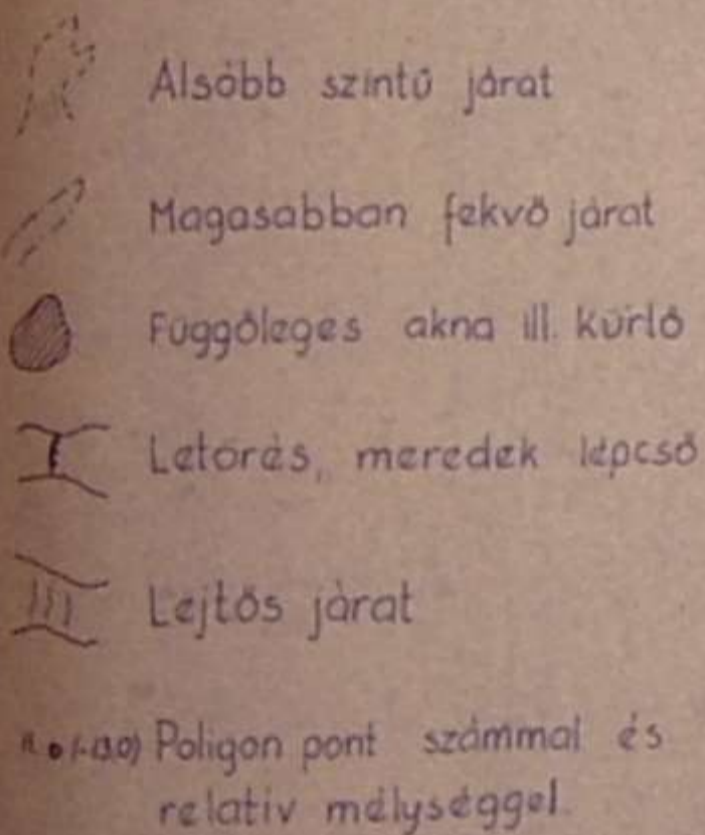 Alsóbb szintű járat
Magasabban fekvő járat
Függőleges akna ill. kürtő
Letörés, meredek lépcső
Lejtős járat
(-13.0) Poligon pont számmal és
relatív mélységgel.